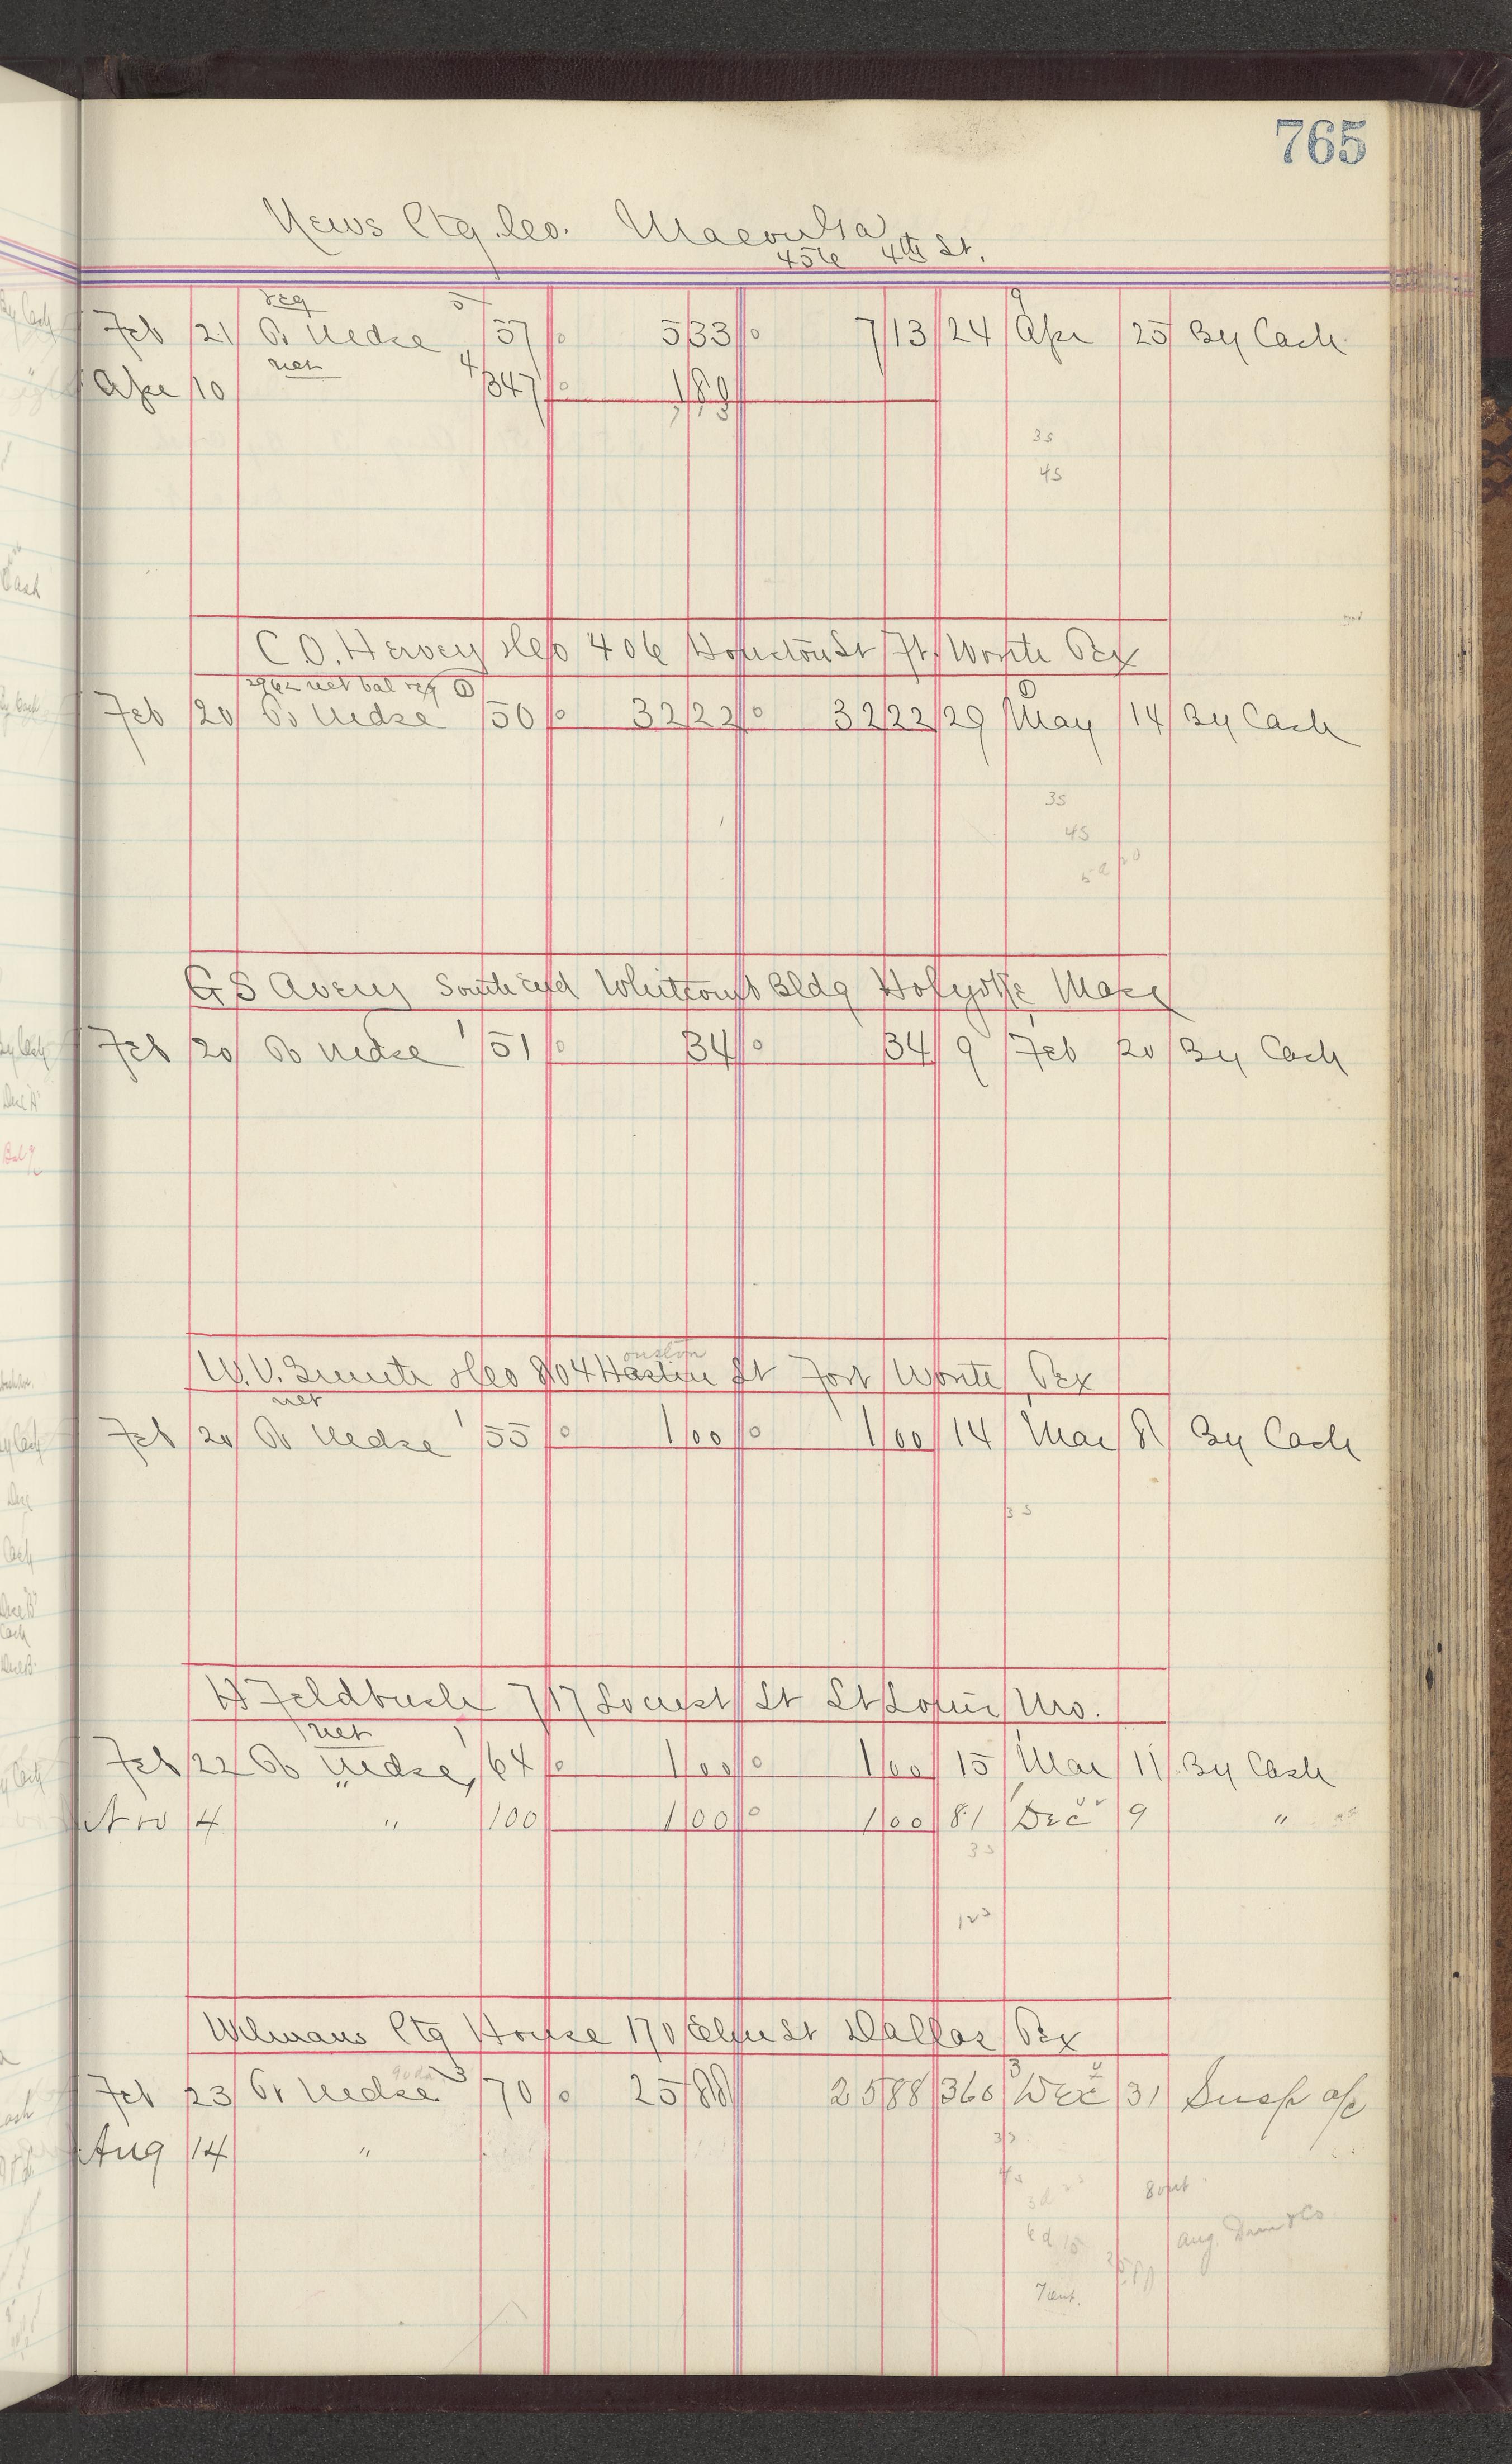 765
News Ptg. Co.
456 4th St.
reg 5 9
Feb 21 To Mdse 57 5 33 7 13 24 Apr 25 By Cash
net 4
Apr 10 347 1 80
3s
4s
C.O. Hervey 406 Houston St Ft. Worth Tex
2962 net bal reg 1 1
Feb 20 To Mdse 50 32 22 32 22 29 May 14 By Cash
3s
4s
G S Avery South End Whitcomb Bldg Holyoke Mass
Feb 20 To Mdse 1 51 34 34 9 Feb 20 By Cash
ouston
W.V. 804 St Fort Worth Tex
net
Feb 20 To Mdse 1 55 1 00 1 00 14 Mar 8 By Cash
3s
H Feldbush 717 Locust St St Louis Mo.
net 1
Feb 22 To Mdse 64 1 00 1 00 15 Mar 11 By Cash
Nov 4 " 100 1 00 1 00 81 Dec 9 "
3s
Wilmans Ptg House 170 Elm St Dallas Tex
3 3
Feb 23 To Mdse 70 25 88 25 88 360 Dec 31 Susp a/c
Aug 14 "
3s
4s